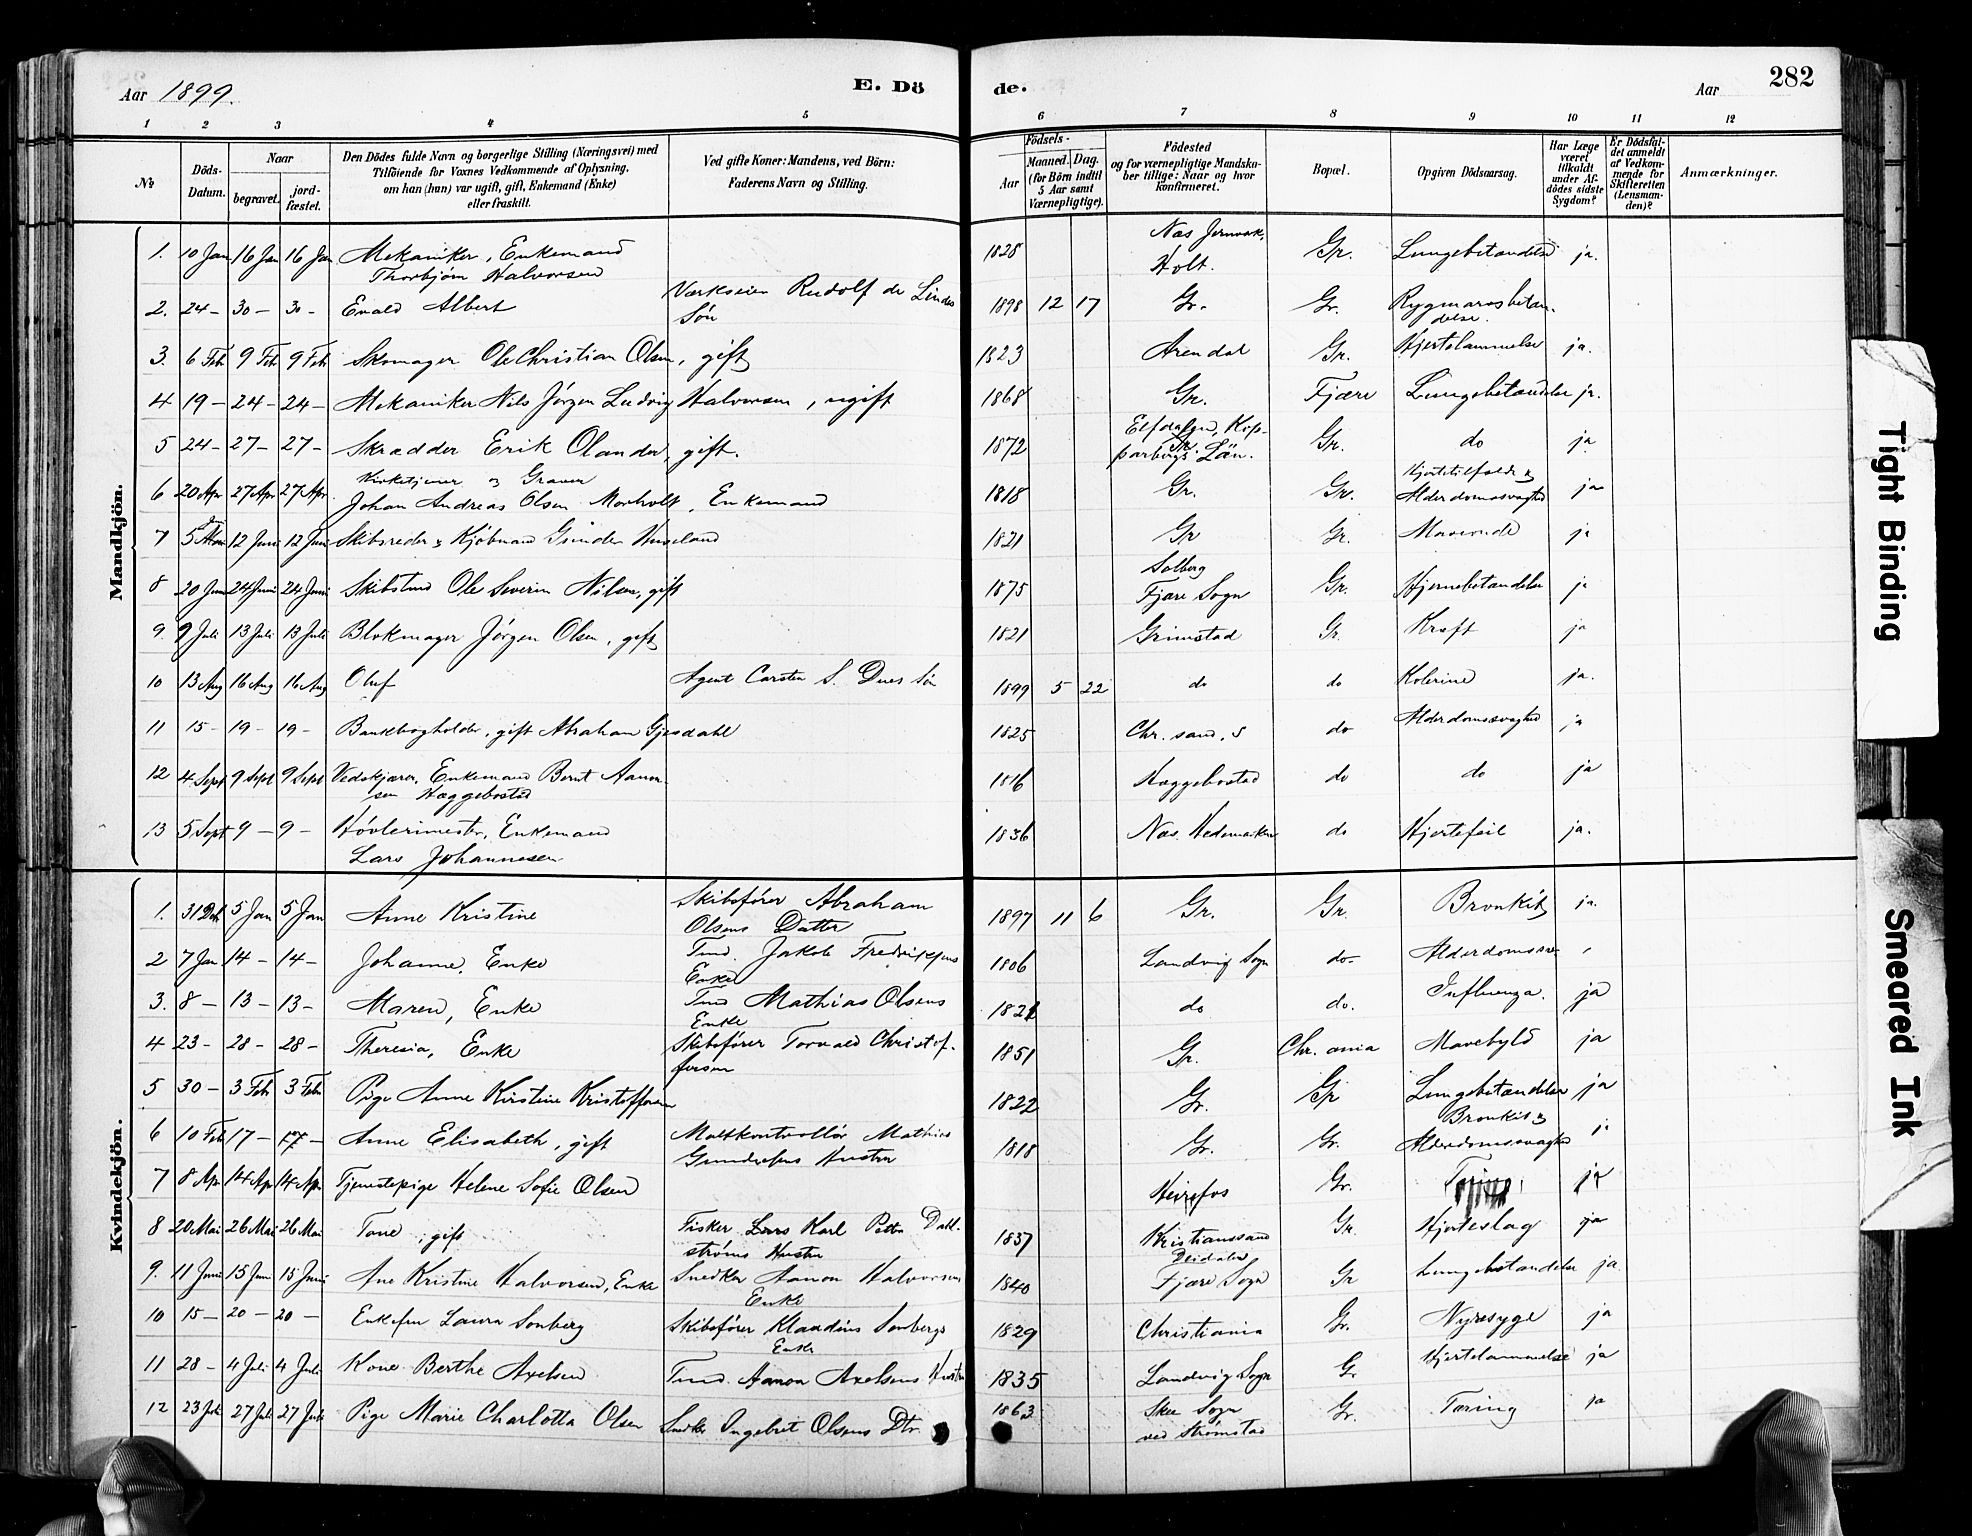 Aar 1899.
E. Dö
de.
Aar
282
1 2 3 4 5 6 7 8 9 10 11 12
№
Döds-Datum.
Naar
begravet.
jord-fæstet.
Den Dödes fulde Navn og borgerlige Stilling (Næringsvei) med
Tilföiende for Voxnes Vedkommende af Oplysning,
om han (hun) var ugift, gift, Enkemand (Enke)
eller fraskilt.
Ved gifte Koner: Mandens, ved Börn:
Faderens Navn og Stilling.
Födsels-
Aar
Maaned. Dag.
(for Börn indtil
5 Aar samt
Værnepligtige).
Födested
og for værnepligtige Mandska-
ber tillige: Naar og hvor
konfirmeret.
Bopæl.
Opgiven Dödsaarsag.
Har Læge
været
tilkaldt
under Af-
dödes sidste
Sygdom?
Er Dödsfal-
det anmeldt
af Vedkom-
mende for
Skifteretten
(Lensman-
den)?
Anmærkninger.
Mandkjön.
1. 10 Jan 16 Jan 16 Jan Mekaniker, Enkemand
Thorbjørn Halvorsen 1828 Næs Jernværk, Holt. Gr. Lungebetændelse ja.
2. 24- 30- 30- Evald Albert Værkseier Rudolf de Lindes
Søn 1898 12 17 Gr. Gr. Rygmarvsbetæn-
delse.
3. 6 Feb 9 Feb 9 Feb Skomager Ole Christian Olsen, gift 1823 Arendal Gr. Hjertelammelse ja.
4 19- 24- 24- Mekaniker Nils Jørgen Ludvig Halvorsen, ugift 1868 Gr. Fjære Lungebetændelse ja.
5 24- 27- 27- Skrædder Erik Olander, gift. 1872 Elfdalen, Kop-
parbergs Län. Gr. do ja
6 20 Apr 27 Apr 27 Apr Kirketjener og Graver
Johan Andreas Olsen Morholt, Enkemand 1818 Gr. Gr. Hjertetilfælde &
Alderdomssvaghed ja
7 5 12 Juni 12 Juni Skibsreder & Kjøbmand Gunder Huseland 1821 Gr Gr. ja
8 20 Juni 24 Juni 24 Juni Ole Severin Nilsen, gift 1875 Solberg
Fjære Sogn Gr. Hjernebetændelse ja
9. 9 Juli 13 Juli 13 Juli Blokmager Jørgen Olsen, gift 1821 Grimstad Gr. Kræft ja
10 13 Aug 16 Aug 16 Aug Oluf Agent Carsten S. Dues Søn 1899 5 22 do do Kolerine ja.
11 15- 19- 19- Bankbogholder, gift Abraham Gjesdahl 1825 Chr. sand. S do Alderdomssvaghed ja
12 4 Sept 9 Sept 9 Sept Vedskjærer, Enkemand Bernt Aanon-
sen Hæggebostad 1816 Hæggebostad do do ja
13 5 Sept 9- 9- Høvlerimester, Enkemand
Lars Johannesen 1836 Næs. Hedemarken do Hjertefeil ja.
Kvindekjön.
1. 31 Deb 5 Jan 5 Jan Anne Kristine Skibsfører Abraham
Olsens Datter 1897 11 6 Gr. Gr. Bronkit ja.
2 7 Jan 14- 14- Johanne, Enke Tmd. Jakob Fredriksens
Enke 1806 Landvig Sogn do- Alderdomssv
3. 8- 13- 13- Maren, Enke Tmd Mathias Olsens
Enke 1821 do do. Influenza. ja
4 23- 28- 28- Theresia, Enke Skibsfører Torvald Christof-
fersen 1851 Gr. Chr. ania Mavebyld ja
5 30- 3 Feb 3 Feb Pige Anne Kirstine Kristoffersen 1822 Gr. Gr Lungebetændelse ja
6 10 Feb 17- 17- Anne Elisabeth, gift Maltkontrollør Mathias
Gundersens Hustru 1818 Gr. Gr. Bronkit &
Alderdomssvaghed ja
7 8 Apr 14 Apr 14 Apr Tjenestepige Helene Sofie Olsen Heirefos Gr. Tæring ja
8 20 Mai 26 Mai 26 Mai Tone, gift Fisker Lars Karl Petter Dahl-
strøms Hustru 1837 Kristianssand Gr. Hjerteslag ja
9. 11 Juni 15 Juni 15 Juni Ane Kristine Halvorsen, Enke Snedker Aanon Halvorsens
Enke 1840 Fjære Sogn Gr Lungebetændelse ja.
10 15- 20- 20- Enkefru Laura Sonberg Skibsfører Klaudius Sonbergs
Enke 1829 Christiania Gr. Nyresyge ja
11 28- 4 Juli 4 Juli Kone Berthe Axelsen Tmd. Aanon Axelsens Hustru 1835 Landvig Sogn G. Hjertelammelse ja
12 23 Juli 27 Juli 27 Juli Pige Marie Charlotta Olsen Snedker Ingebret Olsens Dtr. 1863 Skee Sogn
ved Strømstad Gr. Tæring ja
Tight Binding
Smeared Ink